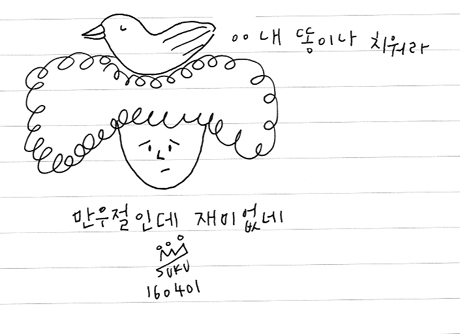 oo 내 똥이나 치워라
만우절인데 재미없네
SUKU
160401